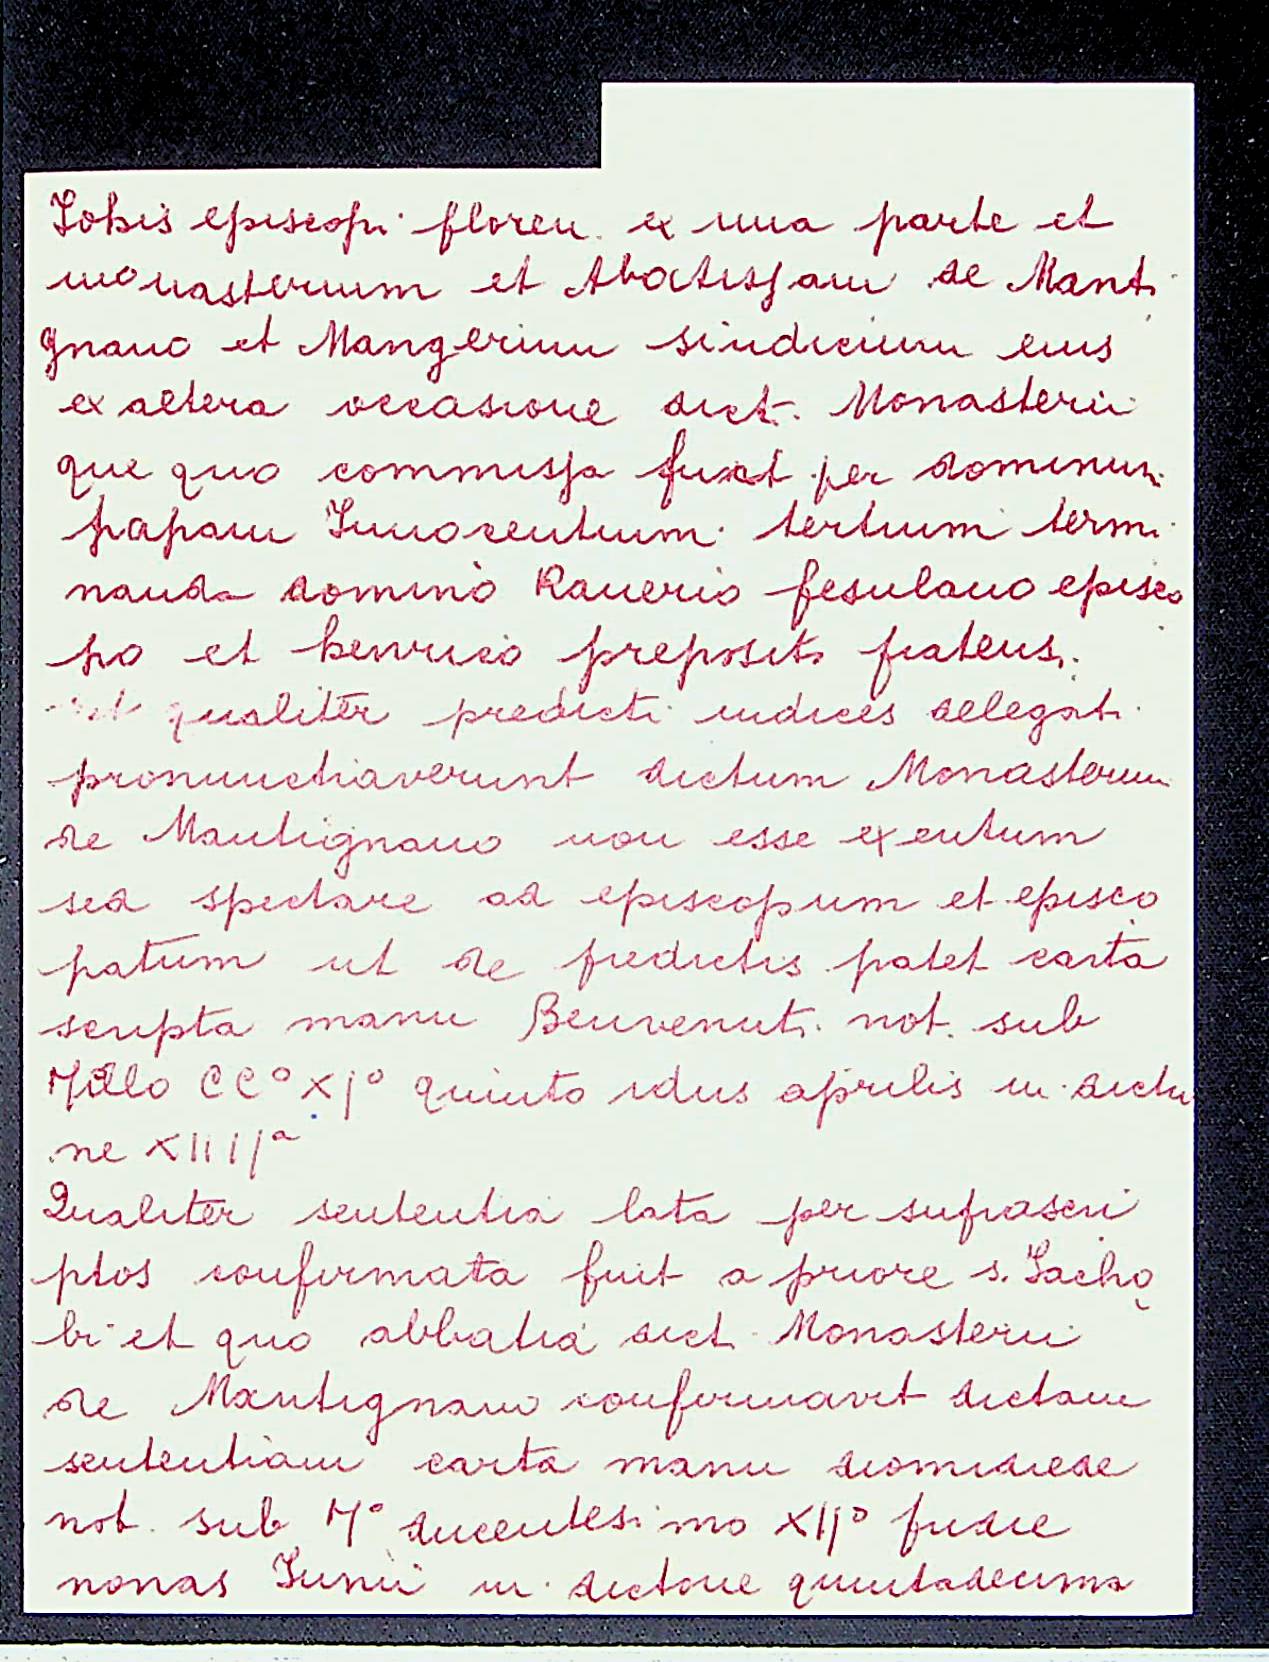 Johis episcopi floren. ex una parte et
monasterium et Abatissam de Manti
gnano et Mangerium sindicium eius
ex altera occasione dict. Monasterii
que quo commissa fuit per dominum
papam Innocentium tertium termi
nanda domino Ranerio fesulano episco
po et henrico preposito
et qualiter predicti iudices delegati
pronunctiaverunt dictum Monasterium
de Mantignano non esse exentum
sed spectare ad episcopum et episco
patum ut de predictis patet carta
scripta manu Benvenuti not. sub
Millo CC° XI° quinto idus aprilis in dictio
ne XIIII a
Qualiter sententia lata per suprascri
ptos confirmata fuit a priore s. Jacho
bi et quo abbatia dict. Monasterii
de Mantignano confirmavit dictam
sententiam carta manu diomidiede
not. sub M° ducentesimo XII° pridie
nonas Junii in dictone quintadecima